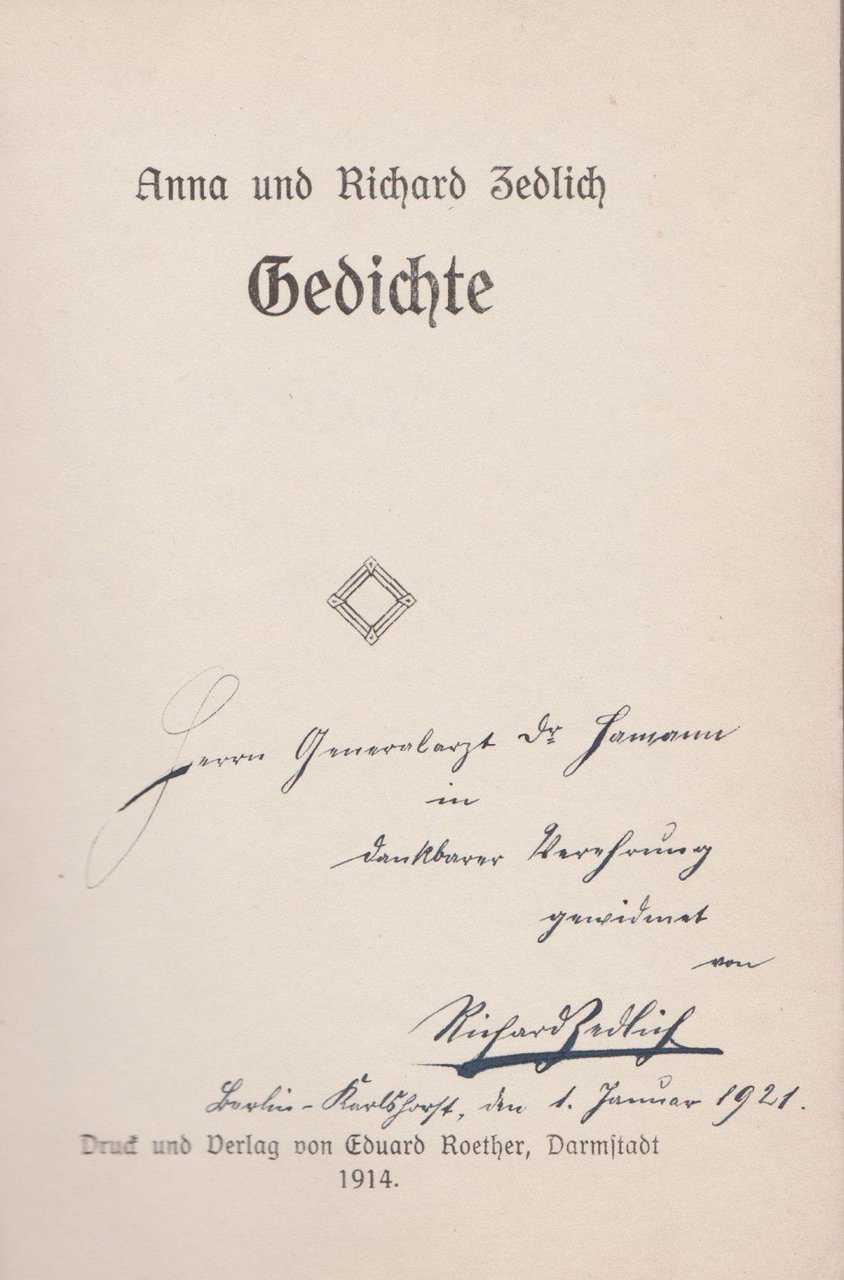 Anna und Richard Zedlich
Gedichte
Herrn Generalarzt Dr Hamann
in
dankbarer Verehrung
gewidmet
von
Richard Zedlich
Berlin-Karlshorst, den 1. Januar 1921.
Druck und Verlag von Eduard Roether, Darmſtadt
1914.